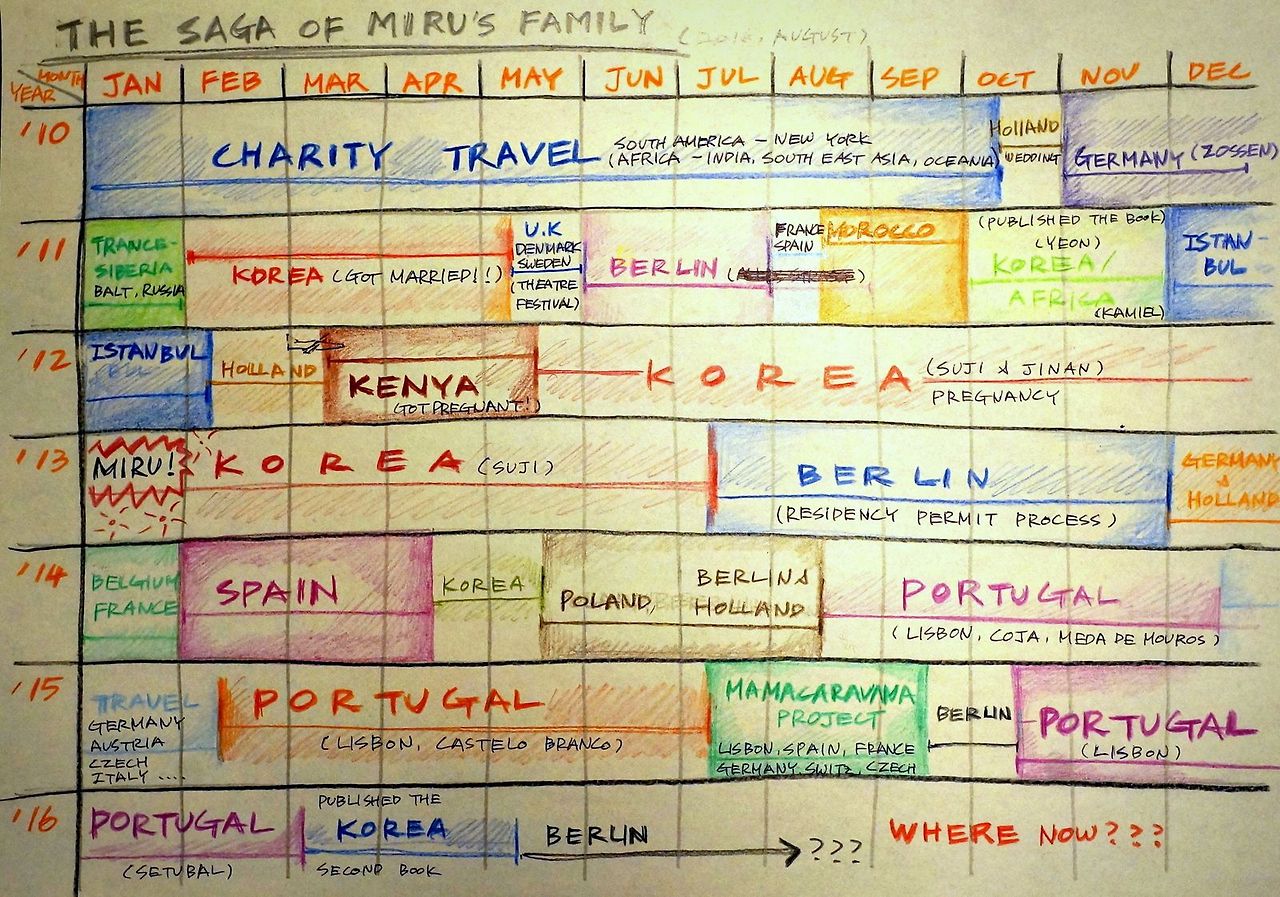 THE SAGA OF MIRU'S FAMILY (2016, AUGUST)
MONTH
YEAR
JAN FEB MAR APR MAY JUN JUL AUG SEP OCT NOV DEC
'10
CHARITY TRAVEL
SOUTH AMERICA - NEW YORK
(AFRICA - INDIA, SOUTH EAST ASIA, OCEANIA)
HOLLAND
WEDDING
GERMANY (ZOSSEN)
'11
TRANCE-
SIBERIA
BALT, RUSSIA
KOREA (GOT MARRIED!!)
U.K
DENMARK
SWEDEN
(THEATRE
FESTIVAL)
BERLIN
FRANCE
SPAIN
MOROCCO
(PUBLISHED THE BOOK)
(YEON)
KOREA/
AFRICA
(KAMIEL)
ISTAN-
BUL
'12
ISTANBUL
HOLLAND
KENYA
(GOT PREGNANT!)
KOREA
(SUJI & JINAN)
PREGNANCY
'13
MIRU!
KOREA (SUJI)
BERLIN
(RESIDENCY PERMIT PROCESS)
GERMANY
&
HOLLAND
'14
BELGIUM
FRANCE
SPAIN
KOREA
BERLIN &
POLAND, HOLLAND
PORTUGAL
(LISBON, COJA, MEDA DE MOUROS)
'15
TRAVEL
GERMANY
AUSTRIA
CZECH
ITALY ....
PORTUGAL
(LISBON, CASTELO BRANCO)
MAMACARAVANA
PROJECT
LISBON, SPAIN, FRANCE
GERMANY, SWITZ, CZECH
BERLIN
PORTUGAL
(LISBON)
'16
PORTUGAL
(SETUBAL)
PUBLISHED THE
KOREA
SECOND BOOK
BERLIN
???
WHERE NOW???